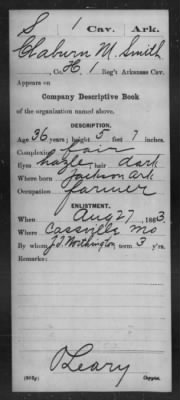 S 1 Cav. Ark.
Claburn M. Smith
, Co. H, 1 Reg't Arkansas Cav.
Appears on
Company Descriptive Book
of the organization named above.
DESCRIPTION.
Age 36 years; height 5 feet 7 inches.
Complexion fair
Eyes hazle, hair dark
Where born Jackson Ark
Occupation farmer
ENLISTMENT.
When Aug 27, 1863.
Where Cassville Mo
By whom J. I. Worthington, term 3 y'rs.
Remarks:
O'Leary
Copyist.